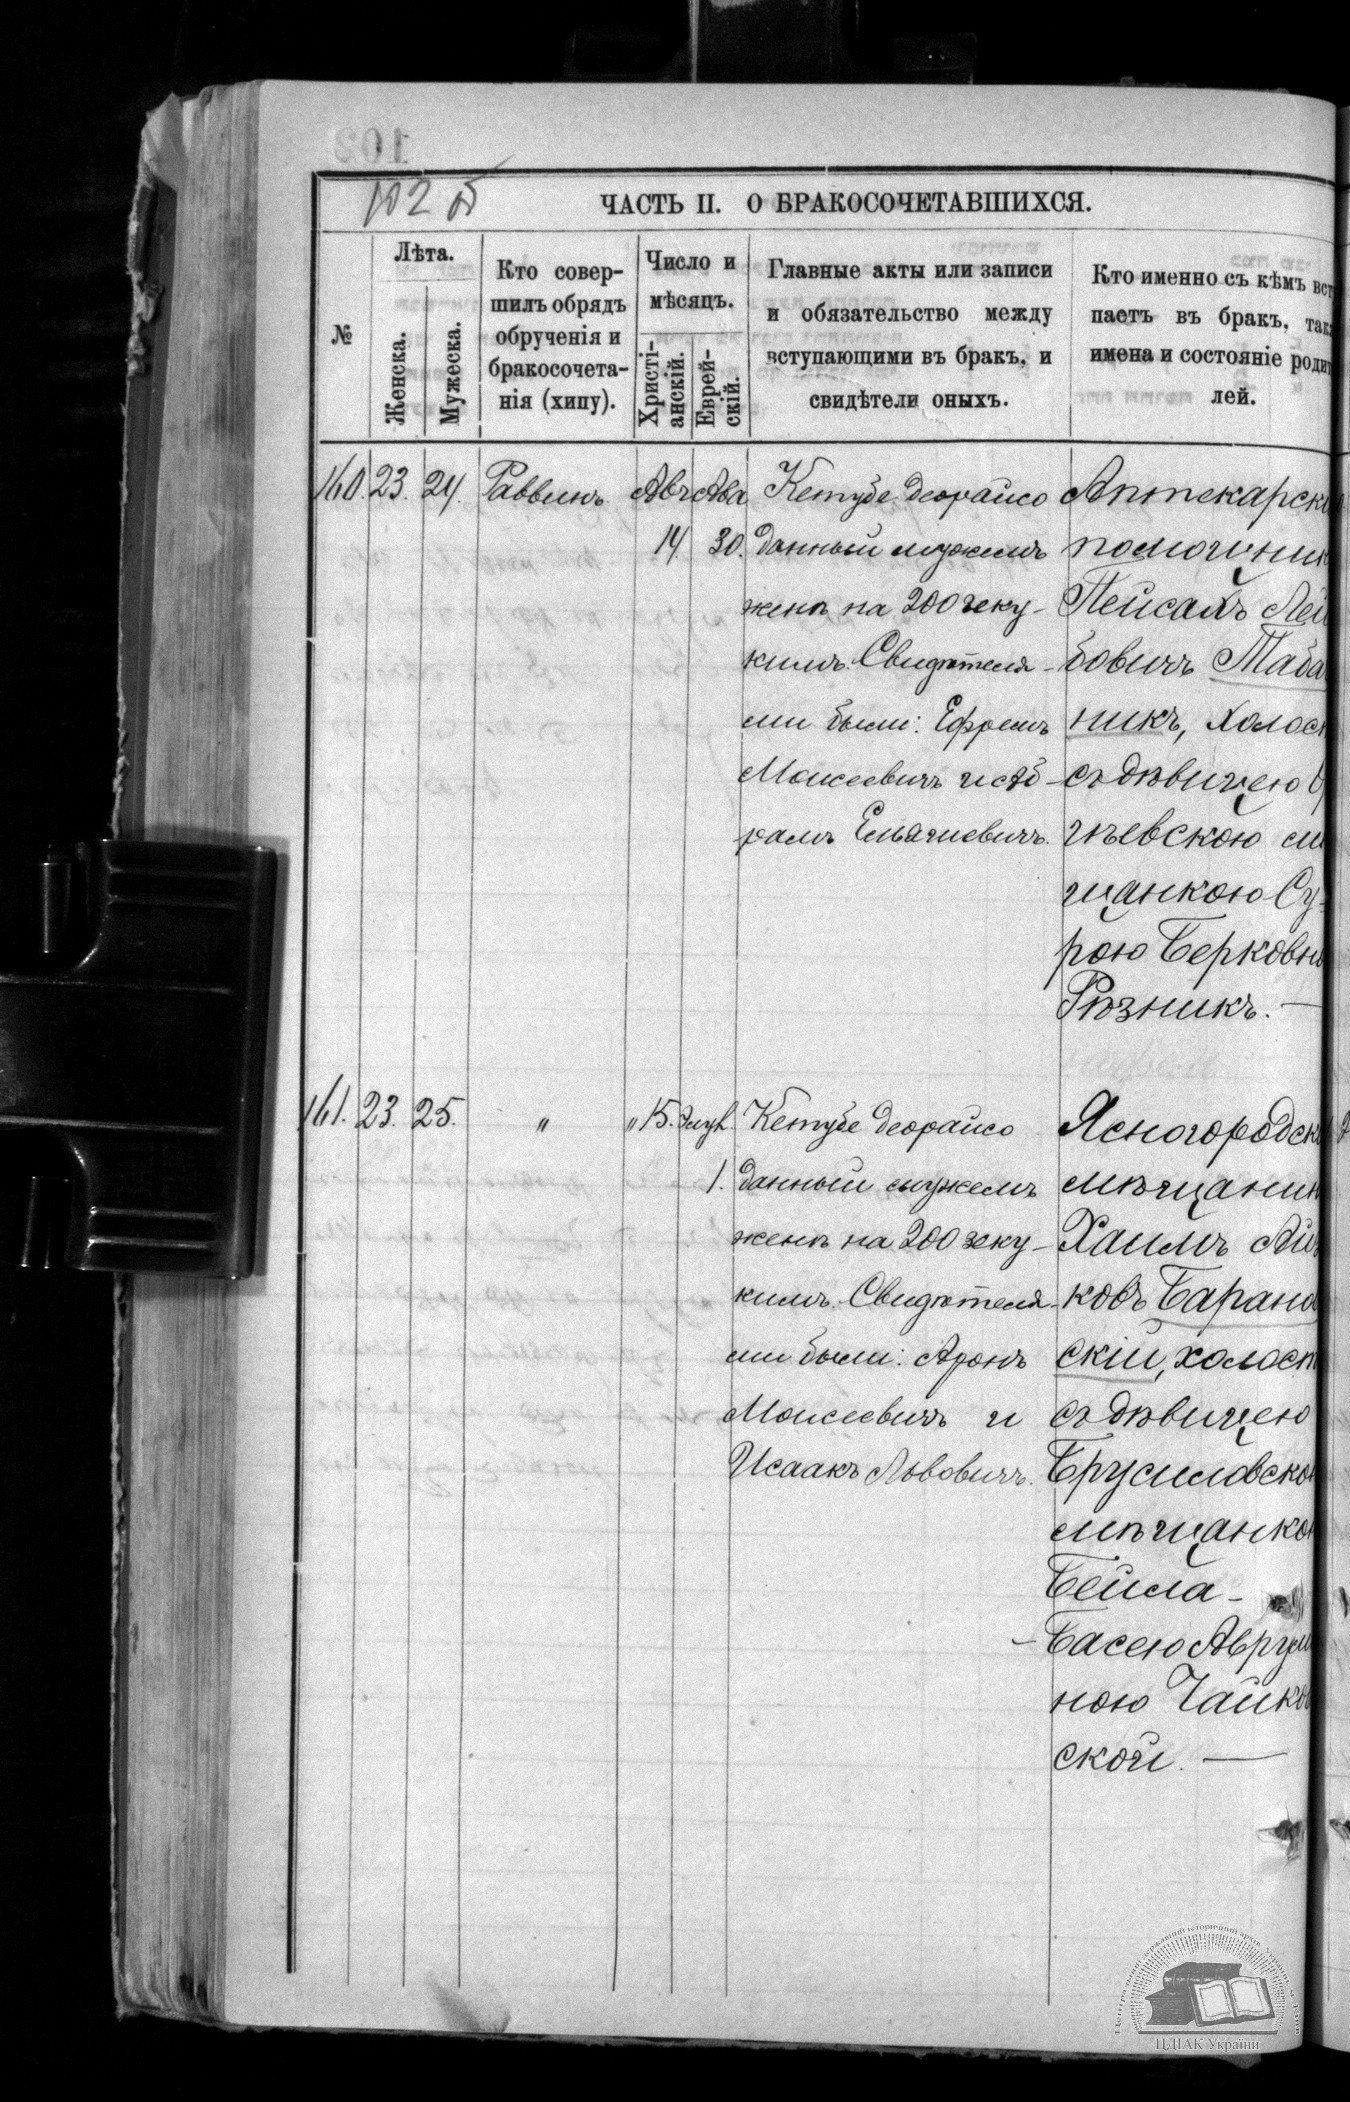 102
102 б
ЧАСТЬ II. О БРАКОСОЧЕТАВШИХСЯ.
№
Лѣта.
Женска.
Мужеска.
Кто совер-
шилъ обрядъ
обрученія и
бракосочета-
нія (хипу).
Число и
мѣсяцъ.
Христі-
анскій.
Еврей-
скій.
Главные акты или записи
и обязательство между
вступающими въ бракъ, и
свидѣтели оныхъ.
Кто именно съ кѣмъ вст
паетъ въ бракъ, так
имена и состояніе родит
лей.
160. 23. 24. Раввинъ Авг. Ава
14 30.
Кетубе деорайсо
данный мужемъ
женѣ на 200 зеку-
кимъ. Свидѣтеля-
ми были: Ефремъ
Моисеевичъ и Аб-
рамъ Ельячиевичъ.
Аптекарскі
помощник
Пейсахъ Лей
бовичъ Таба
никъ, холост
съ дѣвицею
гневскою
щанкою Су-
рою Берковн
Рѣзникъ. —
161. 23. 25. " " 15. Элул.
1.
Кетубе деорайсо
данный мужемъ
женѣ на 200 зеку-
кимъ. Свидѣтеля-
ми были: Аронъ
Моисеевичъ и
Исаакъ Львовичъ.
Ясногородск
мѣщанин
Хаимъ Айз
ковъ Баранов
скій, холост
съ дѣвицею
Брусиловско
мѣщанко
Бейла-
-Басею Аврум
ною Чайков
ской. —
ЦДІАК України